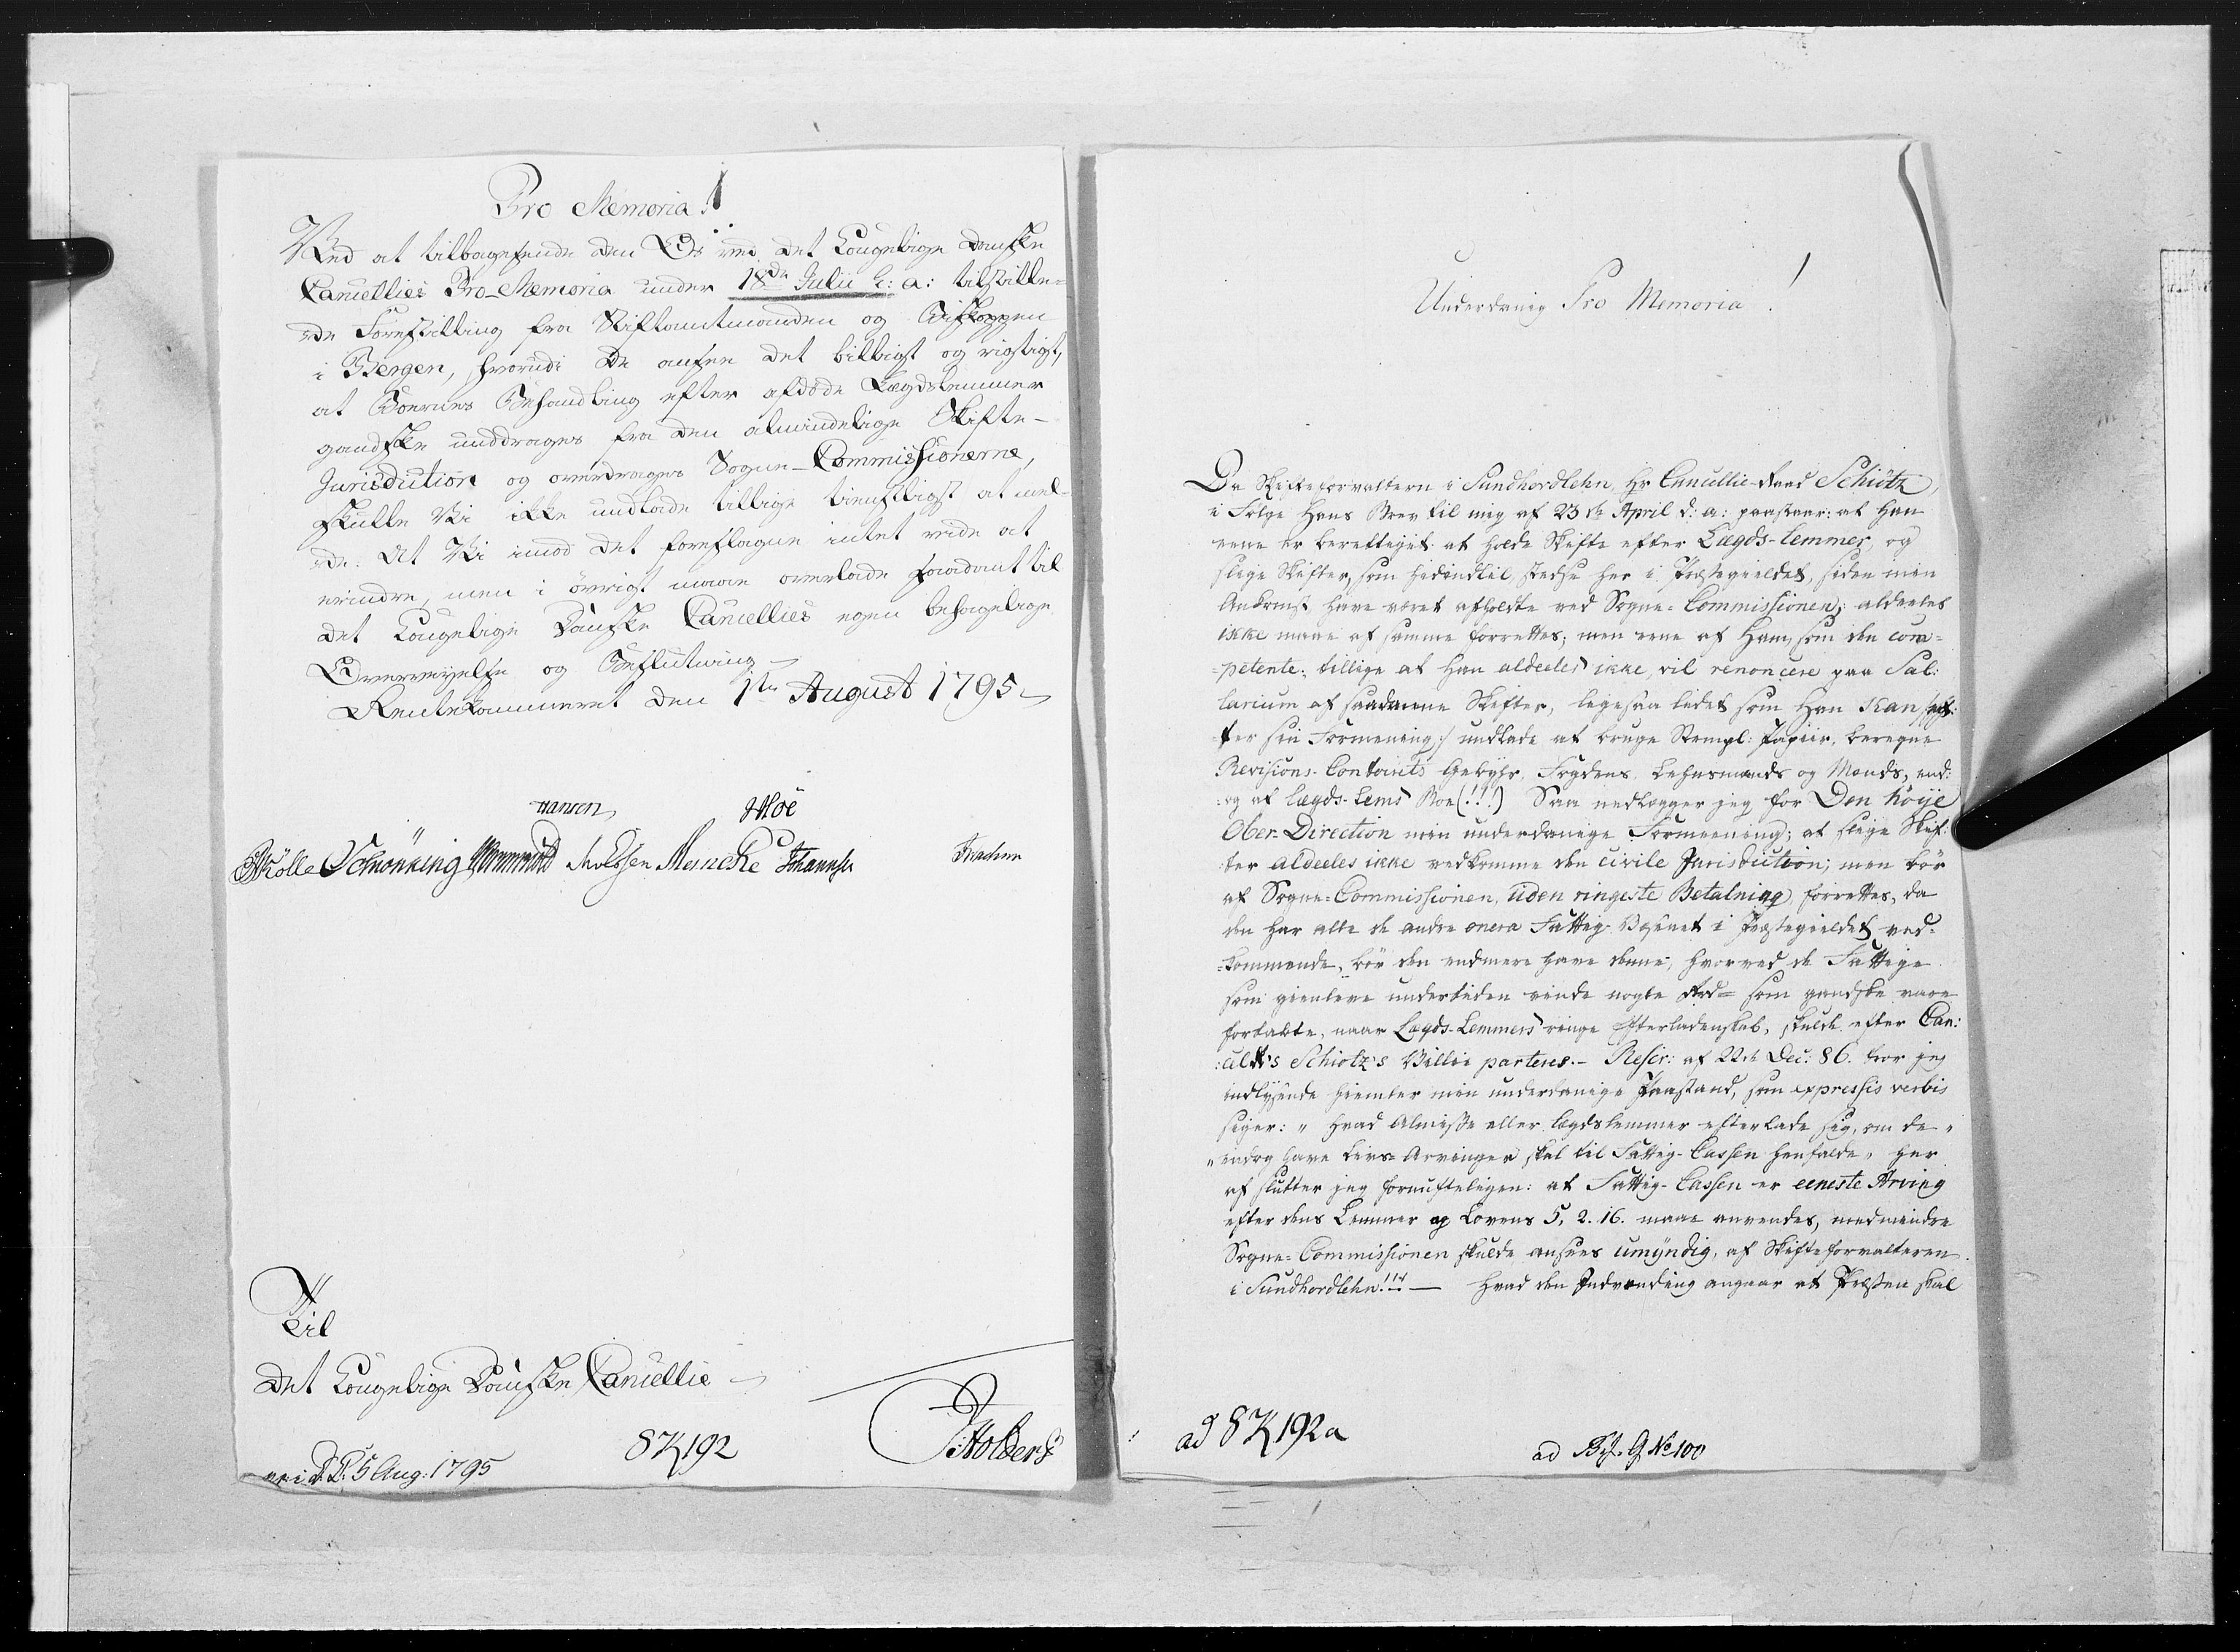 Pro Memoria!
Ved at tilbagesende den Os ved det Kongelige Danske
Cancellies Pro-Memoria under 18de Julii h: a: tilstille-
ede Forestilling fra Stiftamtmanden og Biskoppen
i Bergen, hvorudi De ansee det billigst og rigtigst,
at Boernes Behandling efter afdøde Lægdslemmer
gandske unddrages fra den almindelige Skifte-
Jurisdiction og overdrages Sogne-Commissionerne,
skulle Vi ikke undlade tillige tienstligst at mel-
de: At Vi imod det foreslagne intet vide at
erindre, men i øvrigt maae overlade saadant til
det Kongelige Danske Cancellies egen behagelige
Overveyelse og Beslutning
Rentekammeret den 1ste August 1795
Hansen Hoë
Mölle Schönning Wormskiold Meincke Johannsen
Til
Det Kongelige Danske Cancellie
8K192
d. 5 Aug: 1795
Underdanig Pro Memoria!
Da Skifteforvalteren i Sundhordlehn, Hr Cancellie-Raad Schiøtz,
i Følge Hans Brev til mig af 23de April d: a: paastaaer: at Han
eene er berettiget at holde Skifte efter Lægds-Lemmer, og
slige Skifter, som hidindtil stedse her i Præstegieldet, siden min
Ankomst have været afholdte ved Sogne-Commissionen, aldeeles
ikke maae af samme forrettes; men eene af Ham, som den com-
-petente; tillige at Han aldeeles ikke vil renoncere paa Sal:
larium af saadanne Skifter, ligesaa lidet som Han Kan /:ef:
ter sin Formening:/ undlade at bruge Stempl: Papiir, beregne
Revisions-Contoirets Gebyhr, Fogdens, Lehnsmands og Mænds, end:
og af Lægds-Lems Boe(!!!) Saa nedlægger jeg for Den höye
Ober-Direction min underdanige Formeening; at slige Skif:
ter aldeeles ikke vedkomme den civile Jurisdiction; men bör
af Sogne-Commissionen, uden ringeste Betalning, forrettes, da
den har alle de andre onera Fattig-Væsenet i Præstegieldet ved-
-kommende, bör den endmere have denne, hvorved de Fattige
som gienleve undertiden vinde nogle Ard= som gandske vare
fortabte, naar Lægds-Lemmers ringe Efterladenskab, skulde efter Can:
:cell:R's Schiøtz's Villie parteres.- Rescr: af 22de Dec: 86. troer jeg
indlysende hiemler min underdanige Paastand, som expressis verbis
siger: „ hvad Almisse eller Lægdslemmer efterlade sig, om de „
„ endog have Livs-Arvinger skal til Fattig-Cassen henfalde „ her
af slutter jeg fornufteligen: at Fattig-Cassen er eeneste Arving
efter dens Lemmer og Lovens 5, 2. 16. maae anvendes, medmindre
Sogne-Commissionen skulde ansees umyndig, af Skifteforvalteren
i Sundhordlehn!!! — Hvad den Indvending angaaer at Præsten skal
ad 8K192a
ad Bf. G No 100